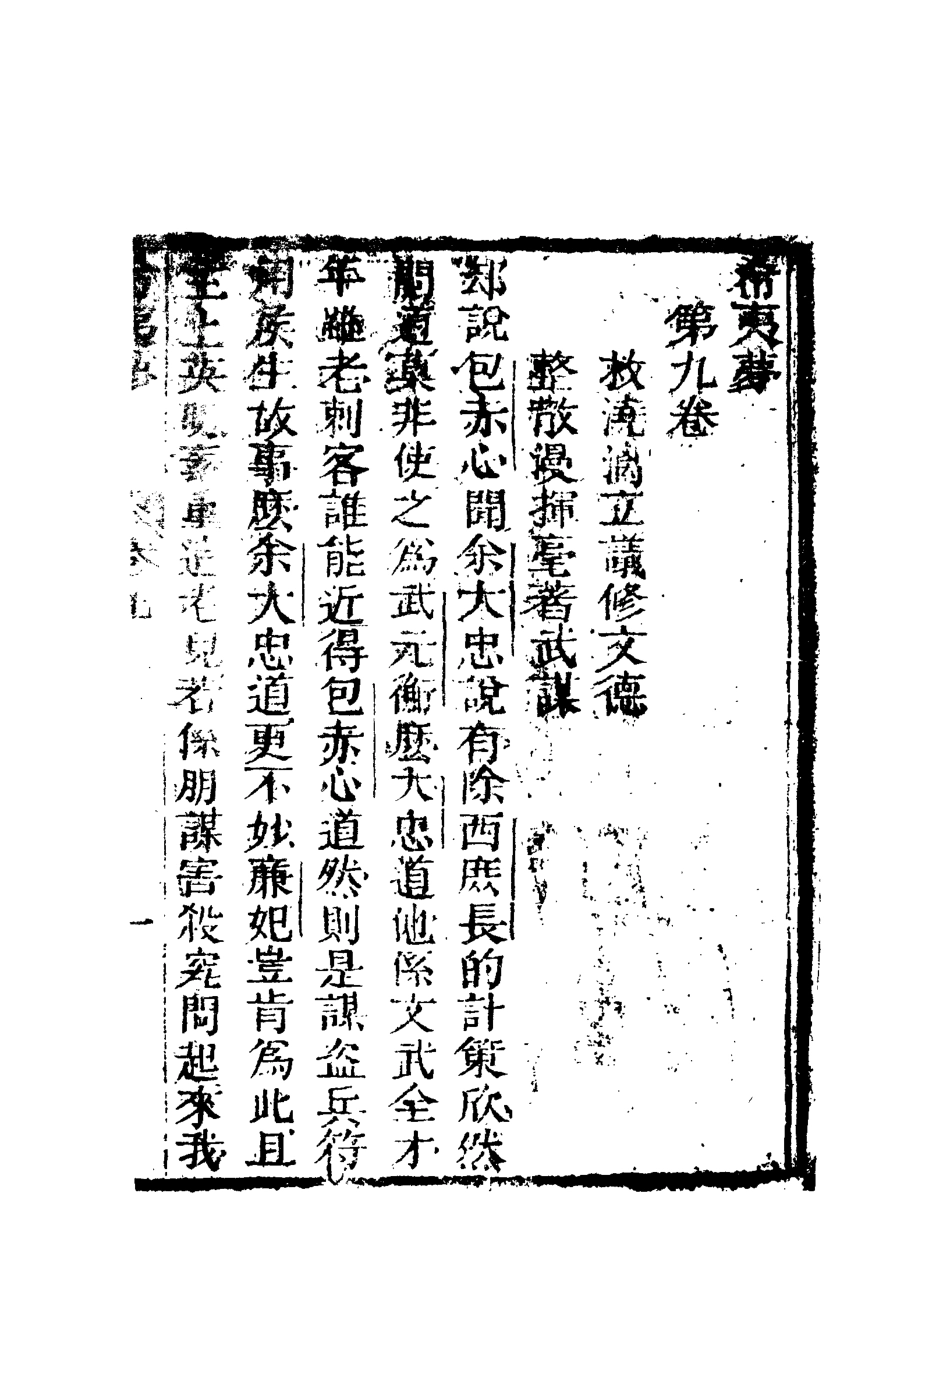 希夷夢
第九卷
救澆漓立議修文德
整散漫揮毫著武謀
却說包赤心聞余大忠說有除西庶長的計策欣然
問道莫非使之爲武元衡麽大忠道他係文武全才
年雖老刺客誰能近得包赤心道然則是謀盜兵符
用侯生故事麽余大忠道更不妙廉妃豈肯爲此且
主上英明豪重這老兒若係朋謀害殺究問起來我
希夷夢
卷九
一